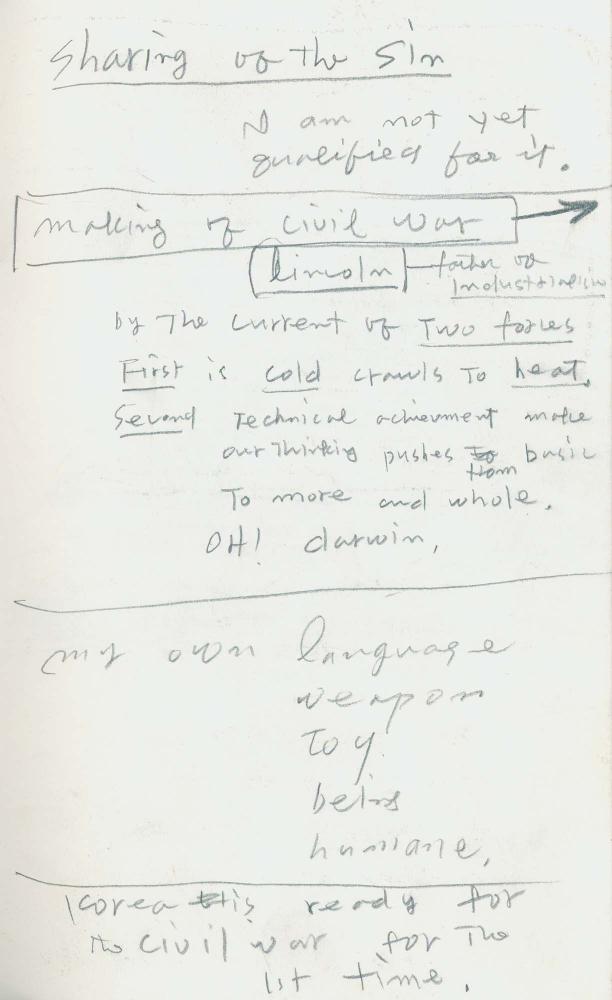 Sharing of the Sin
I am not yet
qualified for it.
making of civil war
lincoln father of
industrialism
by The current of Two forces
First is cold crawls To heat.
Second Technical achievment make
our Thinking pushes from basic
To more and whole.
OH! darwin,
my own language
weapon
Toy
being
humane,
Korea is ready for
the Civil war for The
1st time.